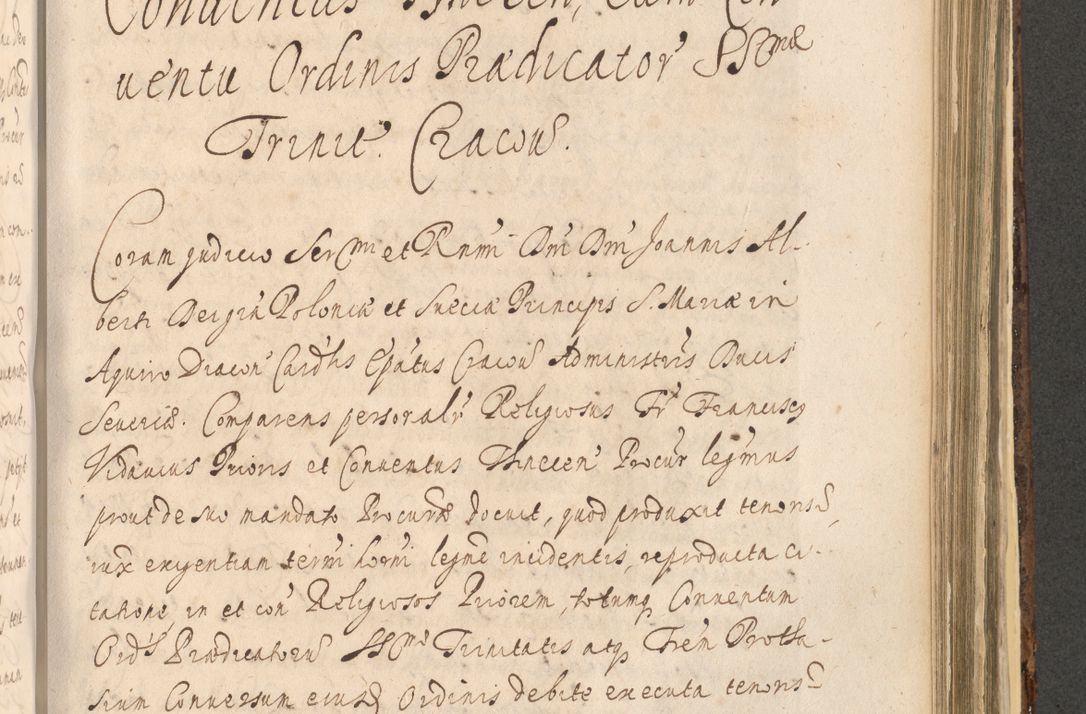 Conventus Thnecen, cum Con
ventu Ordinis Prædicator SSmæ
Trinit. Cracou.
Coram judicio Sermi et Rnmi Dni Dni Joannis Al-
berti Dei gra Poloniæ et Sueciæ Principis S. Mariæ in
Aquiro Diacon Cardlis Epatus Cracou Administris Ducis
Seueriæ. Comparens personalr Religiosus Fr Franciscq
Vidauius Prioris et Conuentus Thnecen Procur legmus
prout de suo mandato Procurœ docuit, quod produxit tenoris,
iux exigentiam termi horni legme incidentis, reproducta ci-
tatione, in et con Religiosos Priorem, totumq Conuentum
Ordis Prædicatorum SSmæ Trinitatis atq Frem Protha-
sium Conuersum eiusd Ordinis debite executa tenoris